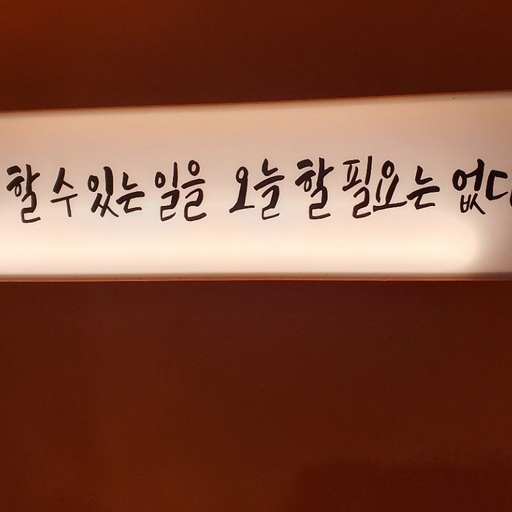 할 수 있는 일을 오늘 할 필요는 없다